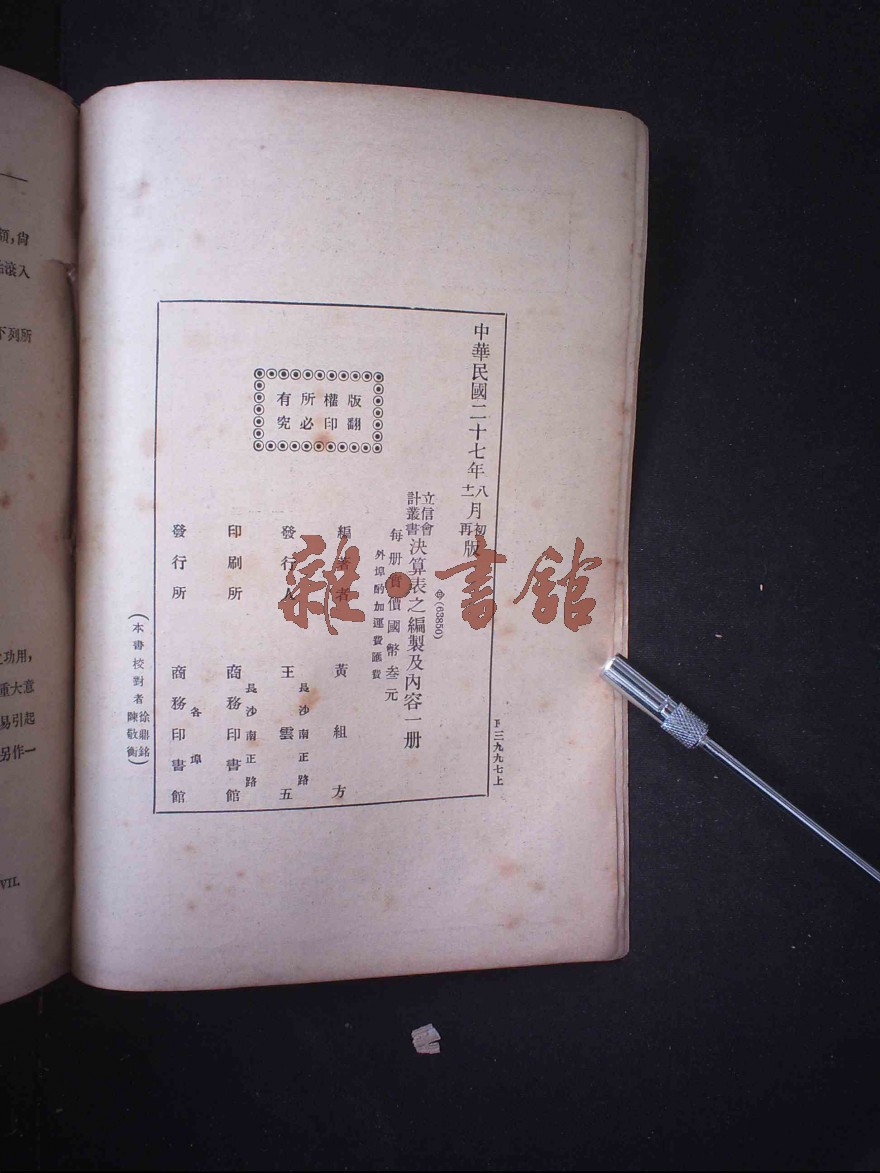 中華民國二十七年八月初版
十二再
立信會計叢書 決算表之編製及內容一册
(63850)
每册實價國幣叁元
外埠酌加運費匯費
版權所有
翻印必究
編著者 黃組方
發行人 王雲五
長沙南正路
印刷所 商務印書館
長沙南正路
發行所 商務印書館
各埠
(本書校對者 徐鼎銘 陳敬衡)
三九九七上
雜·書館
額,尙
滾入
下列所
功用,
重大意
易引起
另作一
VII.